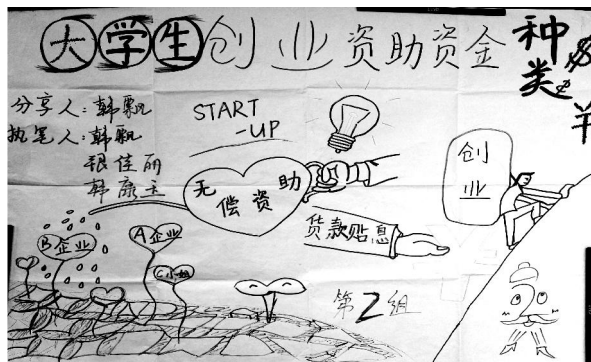 大学生创业资助资金种类
分享人：韩飘
执笔人：韩飘
银佳丽
韩康主
START
-UP
无偿资助
贷款贴息
创业
B企业
A企业
C小组
第2组